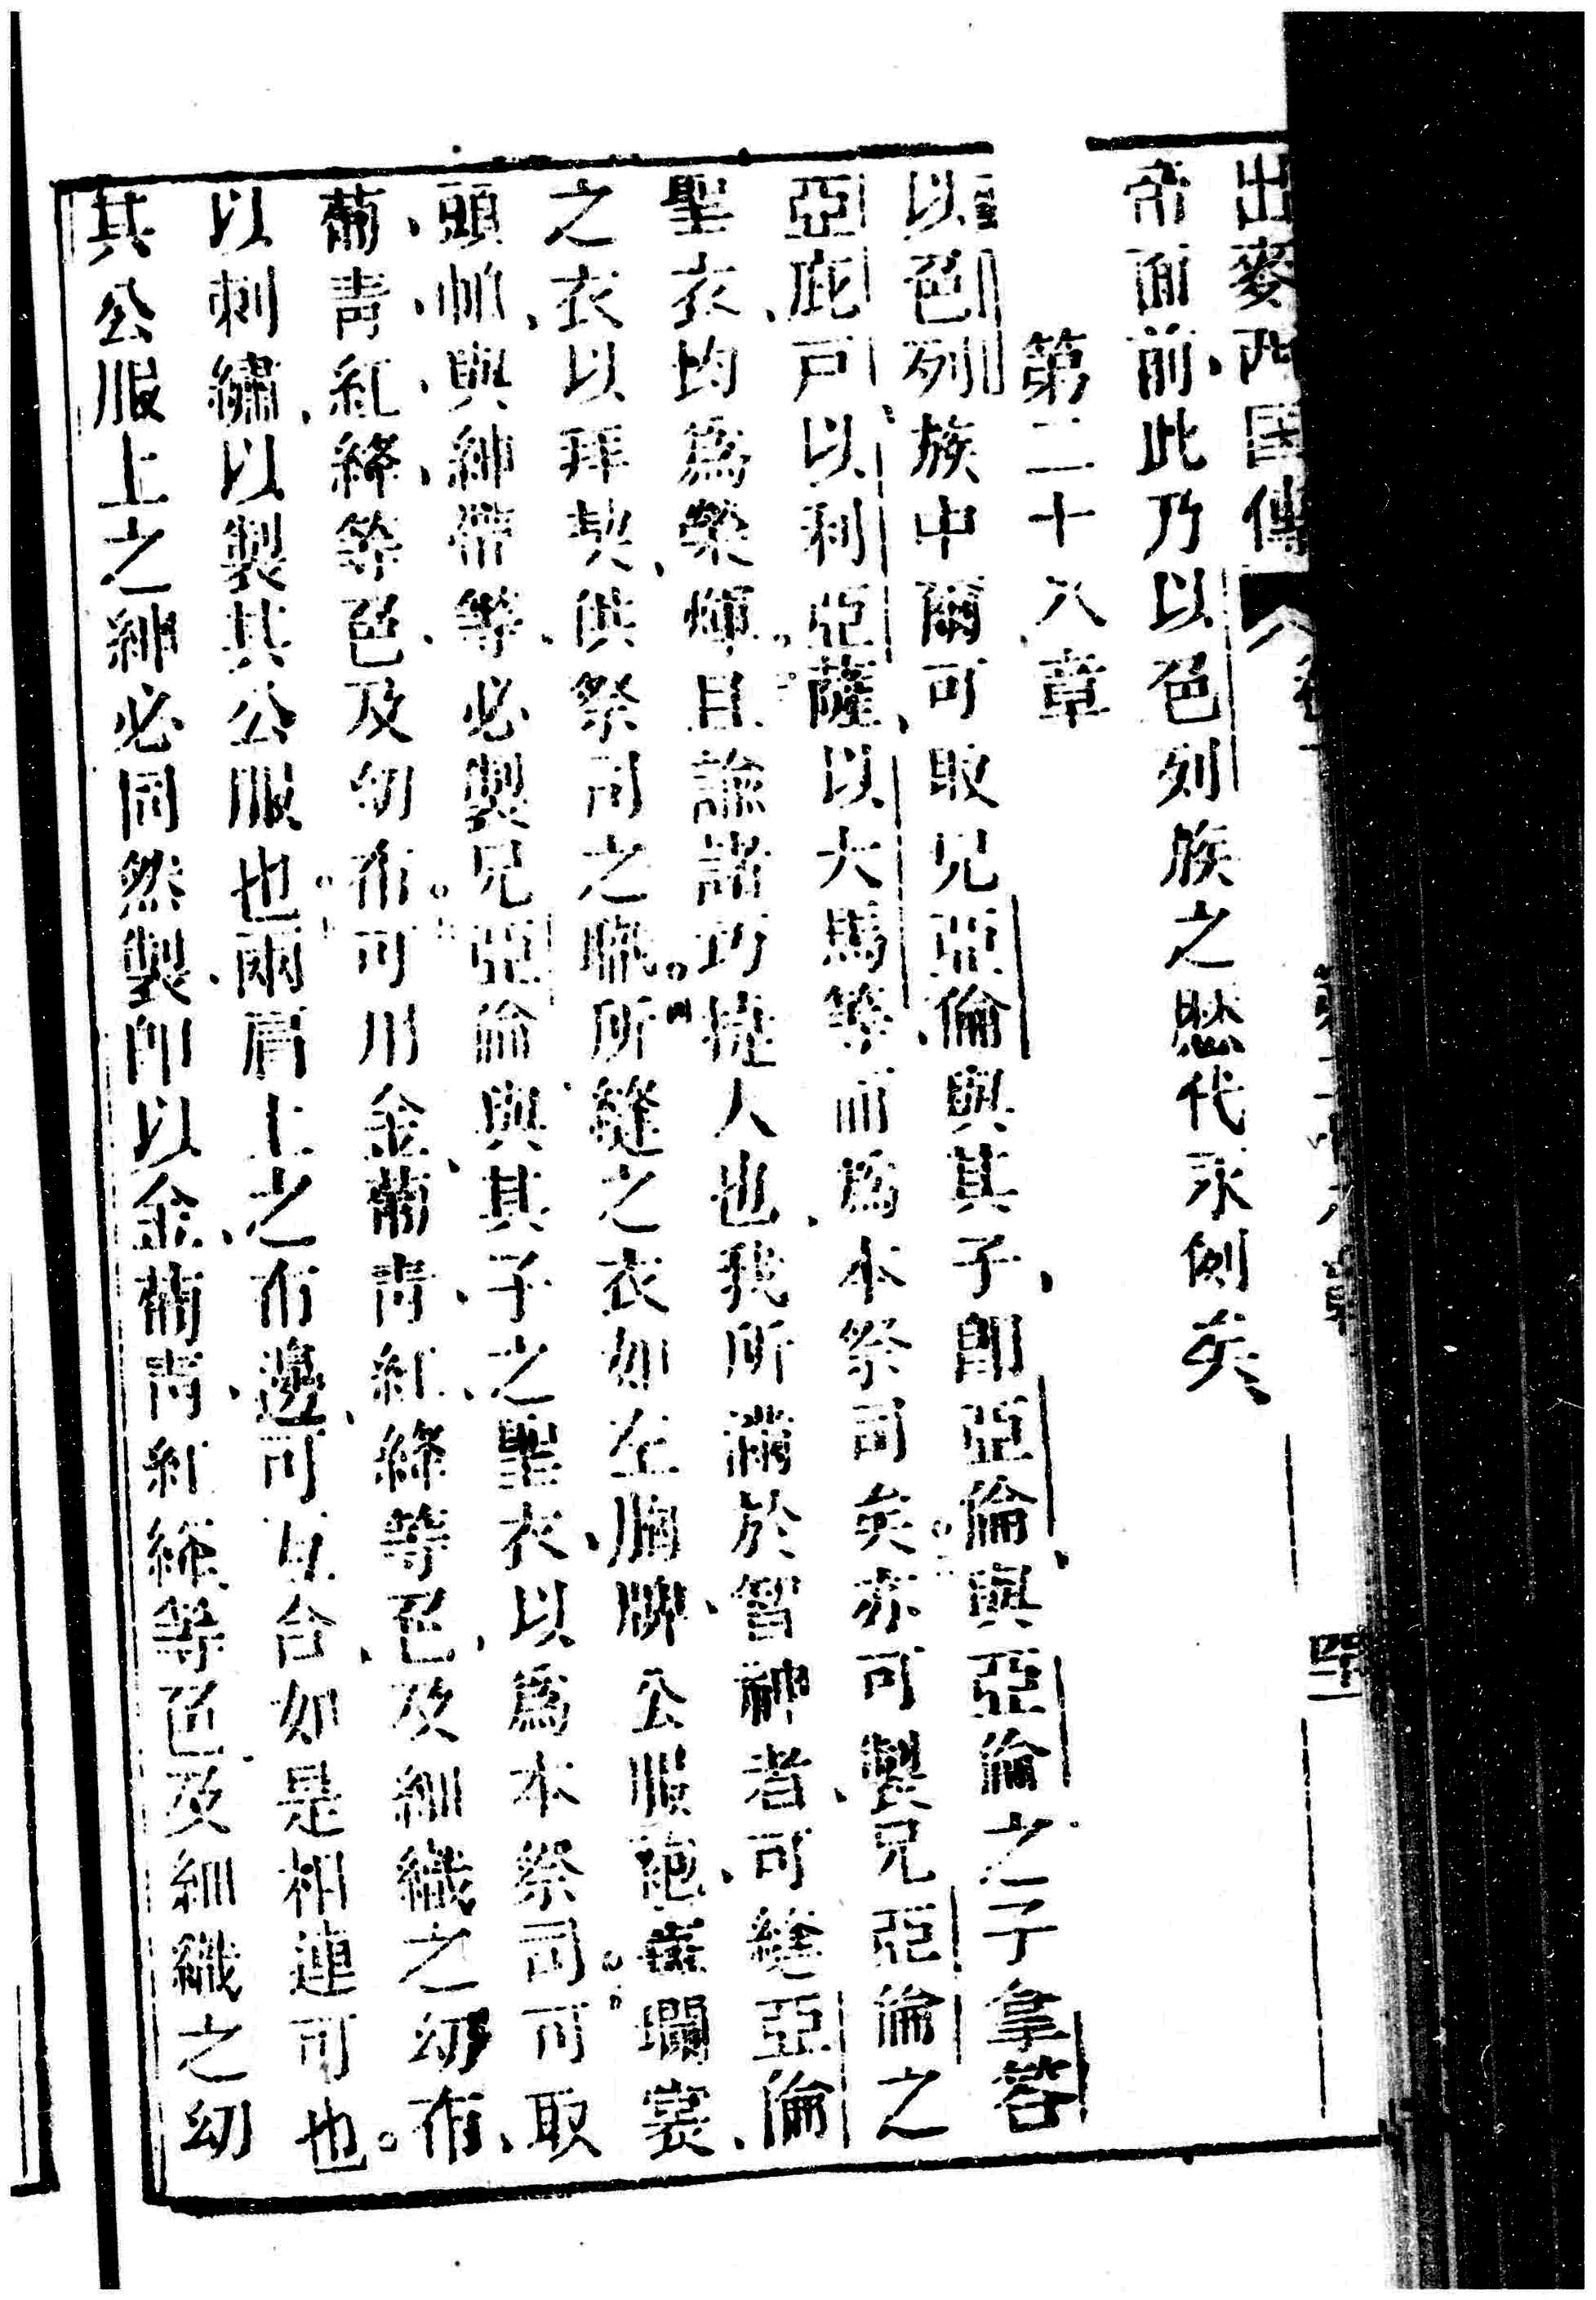 出麥西國傳
帝面前、此乃以色列族之歷代永例矣、
第二十八章
以色列族中爾可取兄亞倫與其子、即亞倫、與亞倫之子拿答
亞庇戸、以利亞薩、以大馬等、而爲本祭司矣。亦可製兄亞倫之
聖衣、均爲榮煇。且諭諸巧捷人也、我所滿於智神者、可縫亞倫
之衣、以拜契、供祭司之職。四所縫之衣如左、胸牌、公服、袍、裏、
頭帕、與紳帶等、必製兄亞倫與其子之聖衣、以爲本祭司。可取
葡、青、紅、絳等色、及幼布。可用金、葡、青、紅、絳等色、及細織之幼布、
以刺繡、以製其公服也。兩肩上之布邊、可互合、如是相連可也。
其公服上之紳必同然製、即以金、葡、青、紅、絳等色、及細織之幼